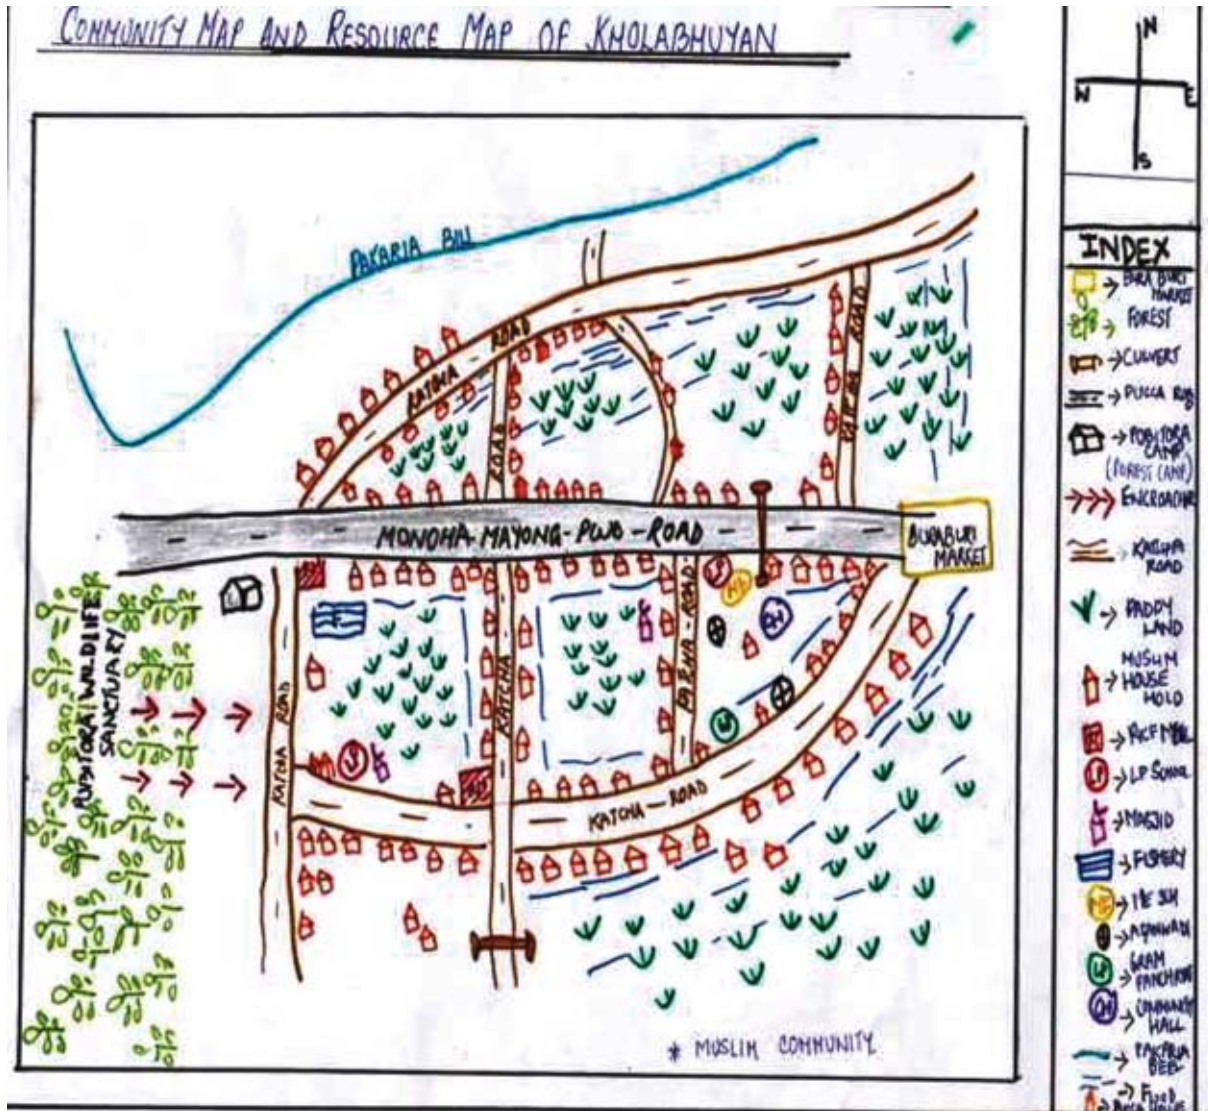 COMMUNITY MAP AND RESOURCE MAP OF KHOLABHUYAN
N
W E
S
PAKARIA BILL
KATCHA ROAD
ROAD
ROAD
MONOHA-MAYONG-PWD-ROAD
BURABURI
MARKET
POBITORA WILDLIFE
SANCTUARY
KATCHA ROAD
KATCHA
ROAD
LP
ME
CH
F
LP
KATCHA-ROAD
* MUSLIM COMMUNITY
INDEX
→ BURA BURI
MARKET
→ FOREST
→ CULVERT
→ PUCCA
→ POBITORA
CAMP
(FOREST CAMP)
→ KATCHA
ROAD
→ PADDY
LAND
→ MUSLIM
HOUSE
HOLD
→ LP SCHOOL
→ MASJID
→ FISHERY
ME
→ GRAM
→ COMMUNITY
HALL
→ PAKARIA
→ FLOOD